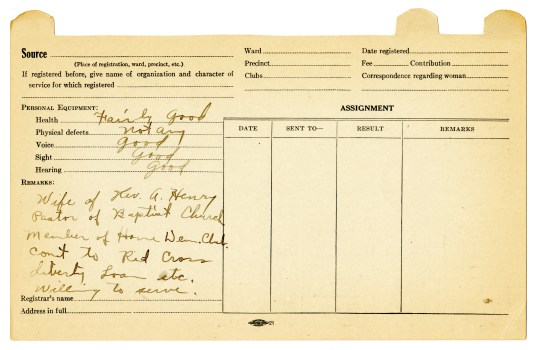 Source
(Place of registration, ward, precinct, etc.)
If registered before, give name of organization and character of
service for which registered
Ward
Precinct
Clubs
Date registered
Fee Contribution
Correspondence regarding woman
PERSONAL EQUIPMENT:
Health Fairly Good
Physical defects Not any
Voice Good
Sight Good
Hearing Good
REMARKS:
Wife of Rev. A. Henry
Pastor of Baptist Church
Member of Home Dem. Club.
cont to Red Cross
Liberty Loan etc.
Willing to serve.
Registrar's name
Address in full
ASSIGNMENT
DATE SENT TO— RESULT REMARKS
21